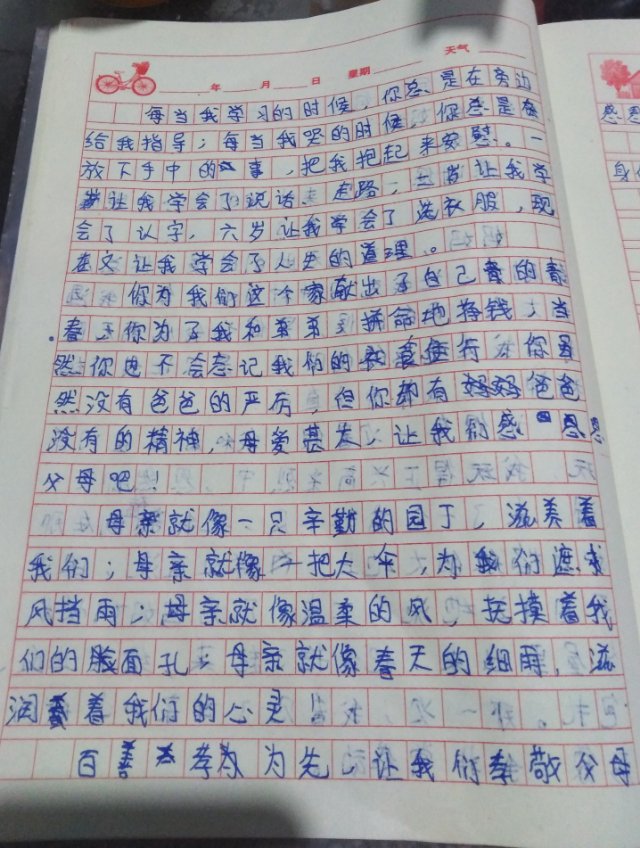 年 月 日 星期 天气
每当我学习的时候,你总是在旁边
给我指导;每当我哭的时候,你总是
放下手中的事,把我抱起来安慰。一
岁让我学会了说话、走路;三岁让我学
会了认字,六岁让我学会了洗衣服,现
在又让我学会了人生的道理。
你为我们这个家献出了自己的青
春,你为了我和弟弟拼命地挣钱,当
然你也不会忘记我们的衣食住行
然没有爸爸的严厉,但你却有爸爸
没有的精神,母爱甚大,让我们感恩
父母吧!
母亲就像一只辛勤的园丁,滋养着
我们;母亲就像一把大伞,为我们遮
风挡雨;母亲就像温柔的风,抚摸着我
们的脸面孔;母亲就像春天的细雨,滋
润着我们的心灵!
百善孝为先,让我们孝敬父母
感
身